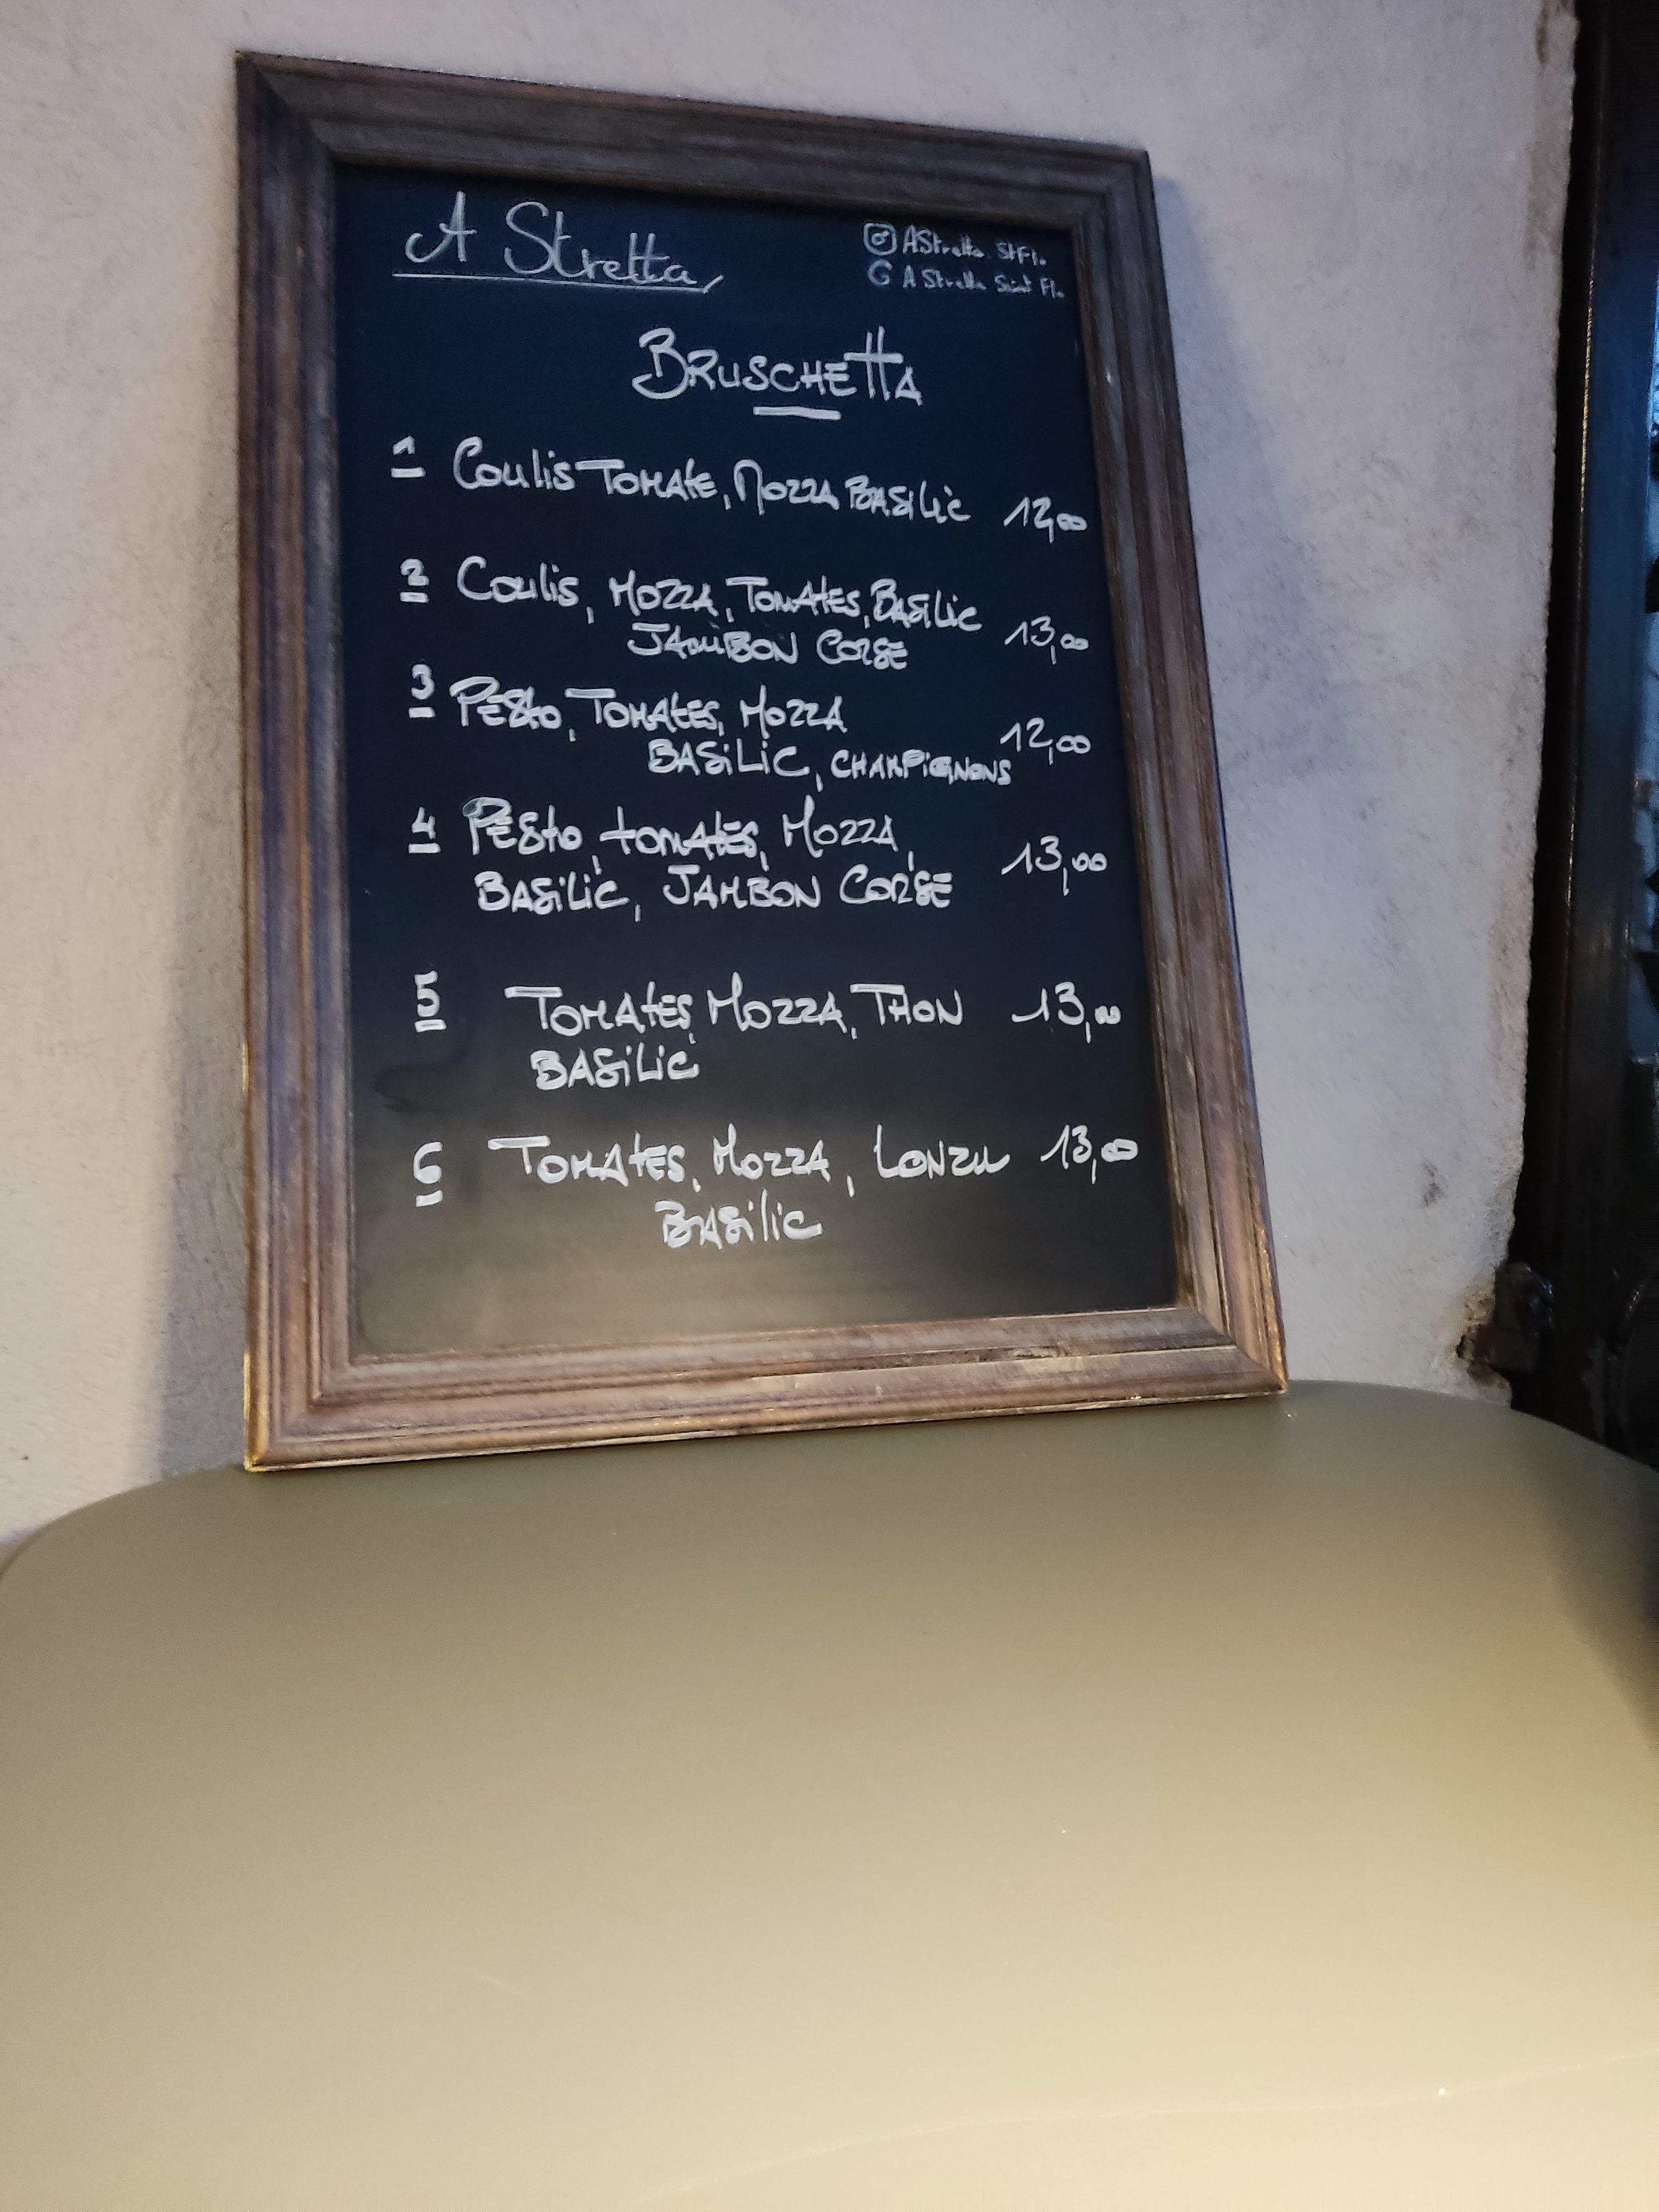 A Stretta
AStretta. StFl.
A Stretta Saint Fl.
BRUSCHETTA
1 Coulis TOMATE, MOZZA BASILIC 12,00
2 Coulis, MOZZA, TOMATES, BASILIC
JAMBON CORSE 13,00
3 PESTO, TOMATES, MOZZA
BASILIC, CHAMPIGNONS 12,00
4 PESTO, TOMATES, MOZZA,
BASILIC, JAMBON CORSE 13,00
5 TOMATES, MOZZA, THON 13,00
BASILIC
6 TOMATES, MOZZA, LONZU 13,00
BASILIC